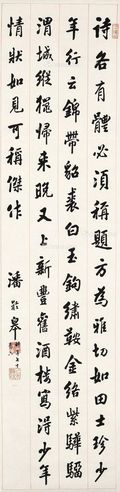 詩各有體必須稱題方為雅切如田士珍少
年行云錦帶貂裘白玉鉤繡鞍金絡紫驊騮
渭城縱獵歸來晚又上新豐舊酒樓寫詩少年
情狀如見可稱傑作
潘齡皋